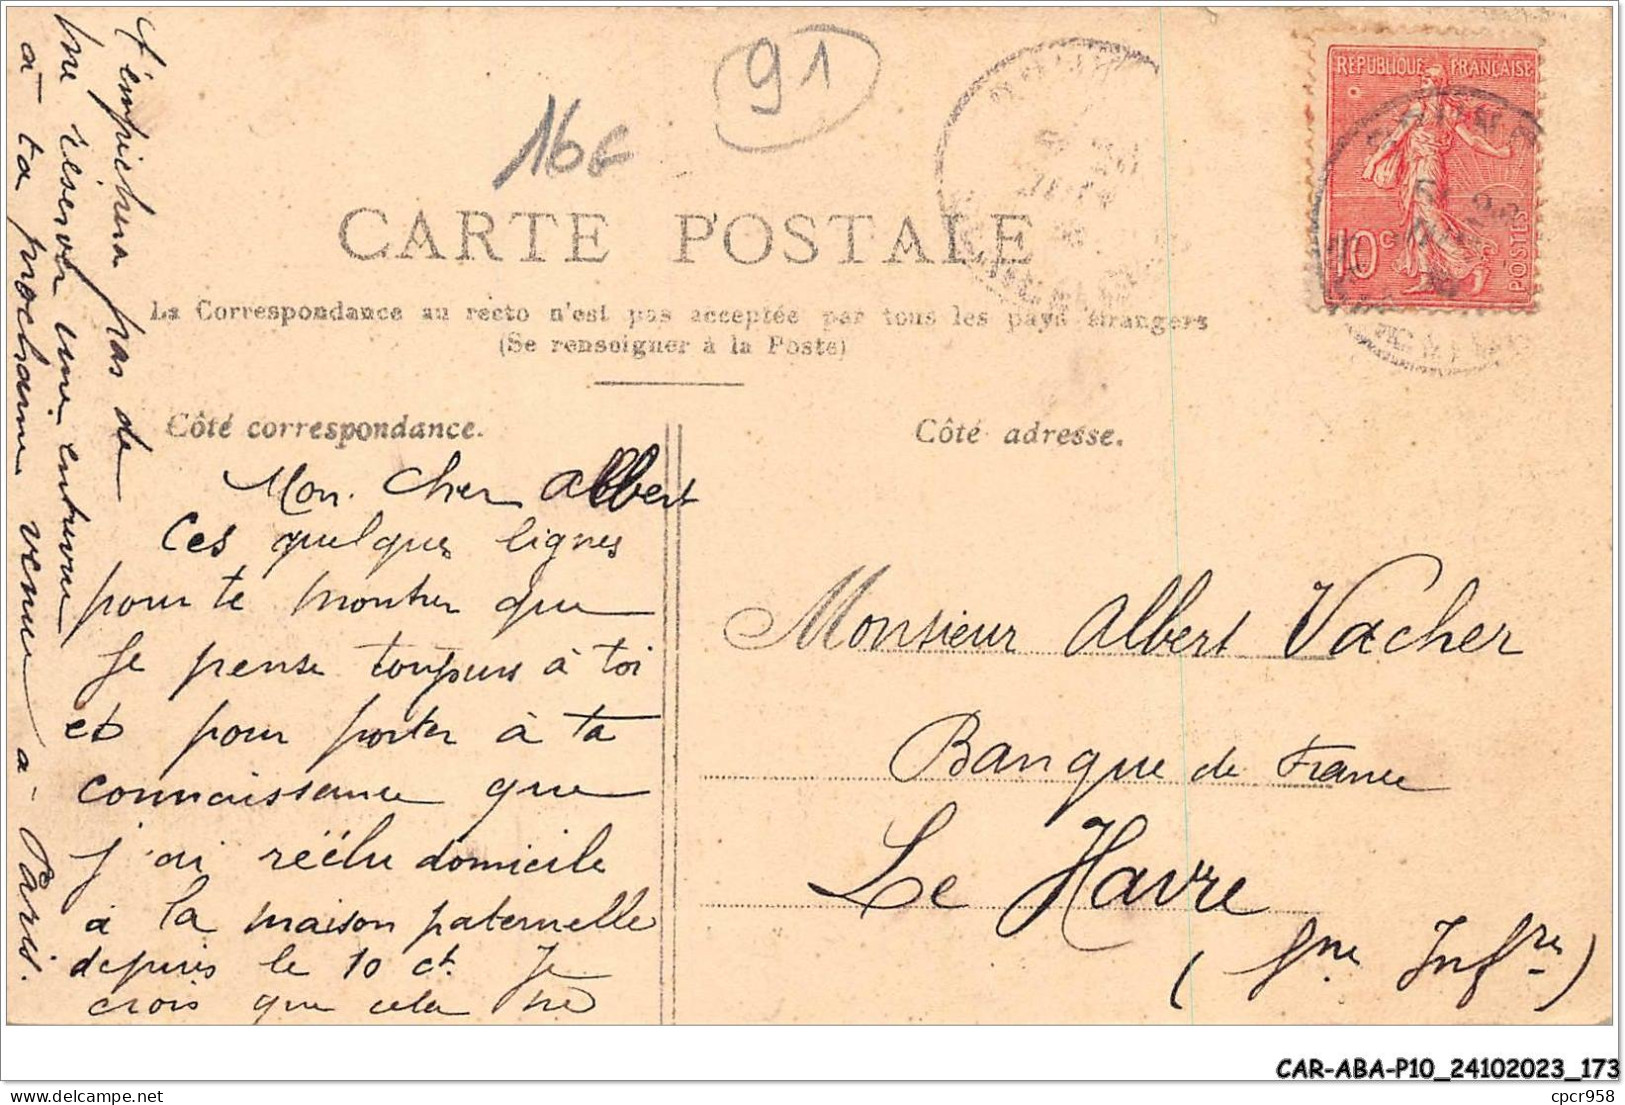 91
16€
CARTE POSTALE
La Correspondance au recto n'est pas acceptée par tous les pays étrangers
(Se renseigner à la Poste)
RÉPUBLIQUE FRANÇAISE
10c
POSTES
Côté correspondance.
Côté adresse.
Mon cher Albert
Ces quelques lignes
pour te montrer que
je pense toujours à toi
et pour porter à ta
connaissance que
j'ai réélu domicile
à la maison paternelle
depuis le 10 ct. Je
crois que cela ne
t'empêchera pas de
me réserver une entrevue
à ta prochaine venue à
Paris.
Monsieur Albert Vacher
Banque de France
Le Havre
(Sne Infre)
CAR-ABA-P10_24102023_173
cpcr958